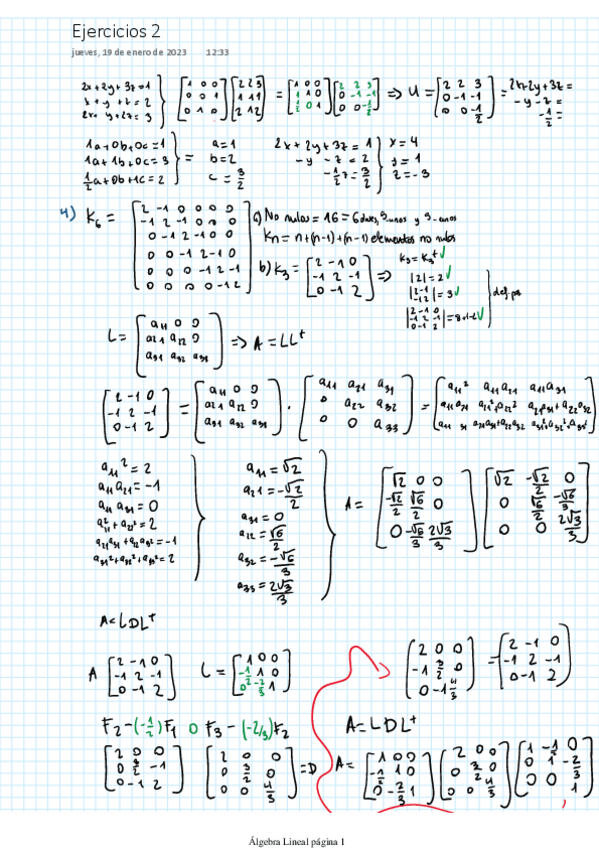 Ejercicios 2
jueves, 19 de enero de 2023 12:33
2x+2y+3z=1
x+y+z=2
2x+y+2z=3
[1 0 0; 0 0 1; 0 1 0] [2 2 3; 1 1 1; 2 1 2] = [1 0 0; 1 1 0; 1/2 0 1] [2 2 3; 0 -1 -1; 0 0 -1/2] => U = [2 2 3; 0 -1 -1; 0 0 -1/2] = 2x+2y+3z=
-y-z=
-1/2=
1a+0b+0c=1
1a+1b+0c=3
1/2a+0b+1c=2
= a=1
b=2
c=3/2
2x+2y+3z=1
-y-z=2
-1/2z=3/2
x=4
y=1
z=-3
4) K6 = [2 -1 0 0 0 0; -1 2 -1 0 0 0; 0 -1 2 -1 0 0; 0 0 -1 2 -1 0; 0 0 0 -1 2 -1; 0 0 0 0 -1 2]
a) No nulos = 16 = 6
Kn = n+(n-1)+(n-1) elementos no nulos
b) K3 = [2 -1 0; -1 2 -1; 0 -1 2] =>
K3 = K3^t ✓
|2|=2 ✓
|2 -1; -1 2| = 3 ✓
|2 -1 0; -1 2 -1; 0 -1 2| ✓
L = [a11 0 0; a21 a22 0; a31 a32 a33] => A = LL^t
[2 -1 0; -1 2 -1; 0 -1 2] = [a11 0 0; a21 a22 0; a31 a32 a33] · [a11 a21 a31; 0 a22 a32; 0 0 a33] =
a11²=2
a11 a21=-1
a11 a31=0
a21²+a22²=2
a21 a31+a22 a32=-1
a31²+a32²+a33²=2
a11=√2
a21=-√2/2
a31=0
a22=√6/2
a32=-√6/3
a33=2√3/3
A= [√2 0 0; -√2/2 √6/2 0; 0 -√6/3 2√3/3] [√2 -√2/2 0; 0 √6/2 -√6/3; 0 0 2√3/3]
A=LDL^t
A [2 -1 0; -1 2 -1; 0 -1 2] L = [1 0 0; -1/2 1 0; 0 -2/3 1]
[2 0 0; -1 3/2 0; 0 -1 4/3] = [2 -1 0; -1 2 -1; 0 -1 2]
F2-(-1/2)F1 0 F3-(-2/3)F2
A=LDL^t
[2 0 0; 0 3/2 -1; 0 -1 2] [2 0 0; 0 3/2 0; 0 0 4/3] = D
A= [1 0 0; -1/2 1 0; 0 -2/3 1] [2 0 0; 0 3/2 0; 0 0 4/3] [1 -1/2 0; 0 1 -2/3; 0 0 1]
Álgebra Lineal página 1